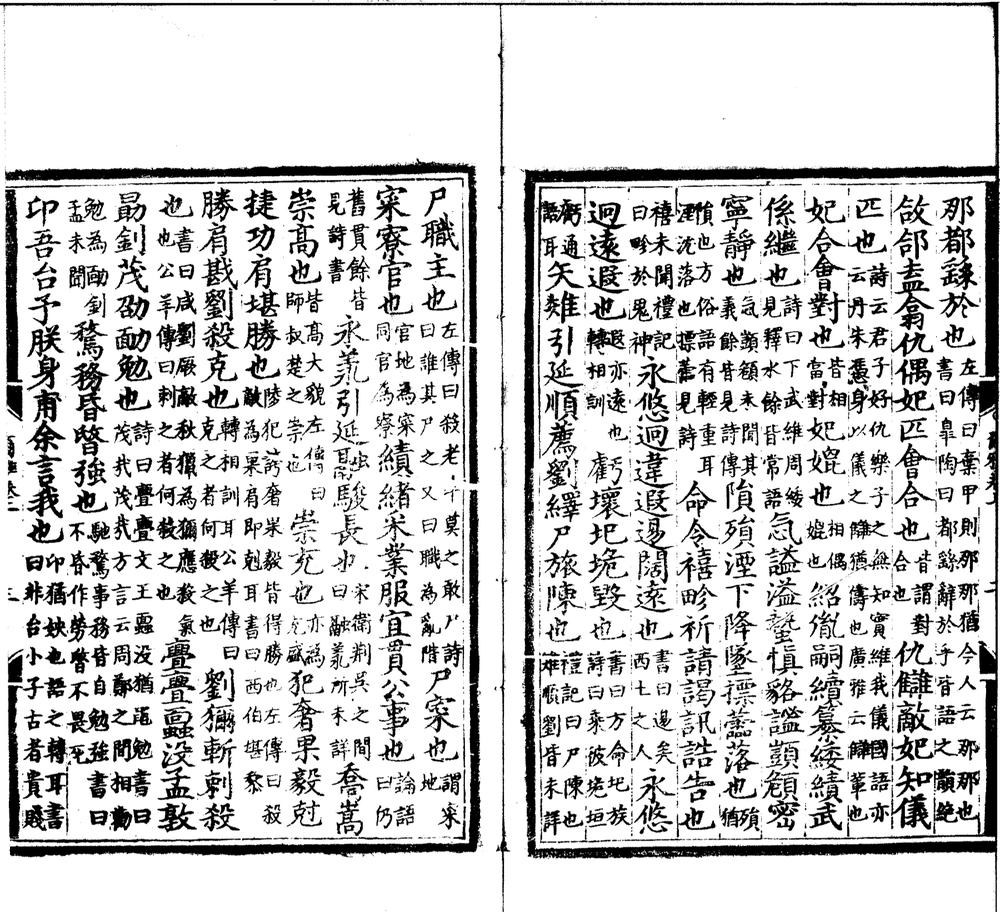 那都繇於也左傳曰棄甲則那那猶今人云那那也書曰皐陶曰都繇辭於乎皆語之韻絶
敆郃盍翕仇偶妃匹會合也皆謂對合也仇讎敵妃知儀
匹也詩云君子好仇樂子之無知實維我儀國語亦云丹朱憑身以儀之讎猶儔也廣雅云讎輩也
妃合會對也皆相當對妃媲也相偶媲也紹胤嗣續纂緌績武
係繼也詩曰下武維周緌見釋水餘皆常語忥謐溢蟄慎貉謐顗頠密
寧靜也忥顗頠未聞其義餘皆見詩傳隕殞湮下降墜摽蘦落也殞猶
隕也方俗語有輕重耳湮沈落也摽蘦見詩命令禧畛祈請謁訊誥告也
禧未聞禮記曰畛於鬼神永悠迥違遐逷闊遠也書曰逷矣西土之人永悠
迥遠遐也遐亦遠也轉相訓虧壞圮垝毀也書曰方命圮族詩曰乘彼垝垣
虧通語耳矢雉引延順薦劉繹尸旅陳也禮記曰尸陳也雉順劉皆未詳
尸職主也左傳曰殺老牛莫之敢尸詩曰誰其尸之又曰職為亂階尸寀也謂寀地
寀寮官也官地為寀同官為寮績緒采業服宜貫公事也論語曰仍
舊貫餘皆見詩書永羕引延融駿長也宋衛荆吳之間曰融羕所未詳喬嵩
崇高也皆高大貌左傳曰師叔楚之崇也崇充也亦為充盛犯奢果毅尅
捷功肩堪勝也陵犯誇奢果毅皆得勝也左傳曰殺敵為果肩即尅耳書曰西伯堪黎
勝肩戡劉殺克也轉相訓耳公羊傳曰克之者何殺之也劉獮斬刺殺
也書曰咸劉厥敵秋獵為獮應殺氣也公羊傳曰刺之者何殺之也亹亹蠠没孟敦
勗釗茂劭勔勉也詩曰亹亹文王蠠没猶黽勉書曰茂哉茂哉方言云周鄭之間相勸
勉為勔釗孟未聞騖務昏暋強也馳騖事務皆自勉強書曰不昏作勞暋不畏死
卬吾台予朕身甫余言我也卬猶姎也語之轉耳書曰非台小子古者貴賤